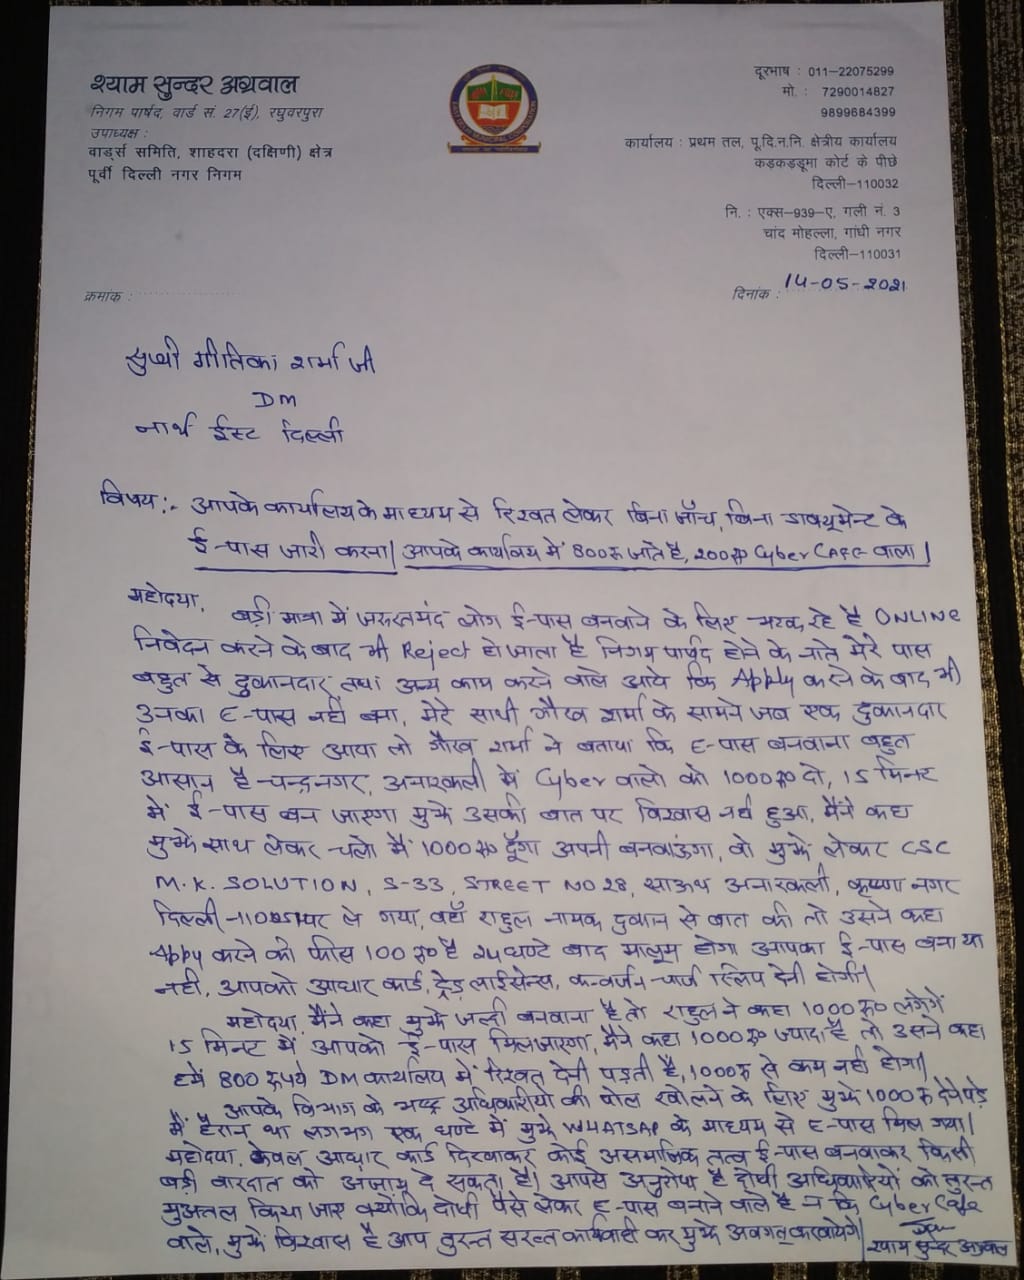 श्याम सुन्दर अग्रवाल
निगम पार्षद, वार्ड सं. 27(ई), रघुवरपुरा
उपाध्यक्ष :
वार्ड्स समिति, शाहदरा (दक्षिणी) क्षेत्र
पूर्वी दिल्ली नगर निगम
दूरभाष : 011-22075299
मो. : 7290014827
9899684399
कार्यालय : प्रथम तल, पू.दि.न.नि. क्षेत्रीय कार्यालय
कड़कड़डूमा कोर्ट के पीछे
दिल्ली-110032
नि. : एक्स-939-ए, गली नं. 3
चांद मोहल्ला, गांधी नगर
दिल्ली-110031
क्रमांक :
दिनांक : 14-05-2021
सुश्री गीतिका शर्मा जी
DM
नार्थ ईस्ट दिल्ली
विषय:- आपके कार्यालय के माध्यम से रिश्वत लेकर बिना जाँच, बिना डाक्यूमेन्ट के
ई-पास जारी करना। आपके कार्यालय में 800रु जाते है, 200रु० Cyber CAFE वाला।
महोदया,
बड़ी मात्रा में जरुरतमंद लोग ई-पास बनवाने के लिए भटक रहे है ONLINE
निवेदन करने के बाद भी Reject हो जाता है निगम पार्षद होने के नाते मेरे पास
बहुत से दुकानदार तथा अन्य काम करने वाले आये कि Apply करने के बाद भी
उनका E-पास नहीं बना, मेरे साथी गौरव शर्मा के सामने जब एक दुकानदार
ई-पास के लिए आया तो गौरव शर्मा ने बताया कि E-पास बनवाना बहुत
आसान है चन्द्रनगर, अनारकली में Cyber वालो को 1000रु० दो, 15 मिनट
में ई-पास बन जाएगा मुझे उसकी बात पर विश्वास नहीं हुआ, मैंने कहा
मुझे साथ लेकर चलो मैं 1000रु० दूँगा अपनी बनवाऊंगा, वो मुझे लेकर CSC
M.K. SOLUTION, S-33, STREET NO 28, साऊथ अनारकली, कृष्णा नगर
दिल्ली-110051 पर ले गया, वहाँ राहुल नामक दुकान से बात की तो उसने कहा
Apply करने की फीस 100रु० है 24 घण्टे बाद मालूम होगा आपका ई-पास बना या
नही, आपको आधार कार्ड, ट्रेड लाईसेन्स, कन्वर्जन चार्ज स्लिप देनी होगी।
महोदया, मैंने कहा मुझे जल्दी बनवाना है तो राहुल ने कहा 1000रु० लगेगें
15 मिनट में आपको ई-पास मिल जाएगा, मैंने कहा 1000रु० ज्यादा है तो उसने कहा
हमें 800 रुपये DM कार्यालय में रिश्वत देनी पड़ती है, 1000रु से कम नहीं होगा।
आपके विभाग के भ्रष्ट अधिकारीयो की पोल खोलने के लिए मुझे 1000रु देने पड़े
मैं हैरान था लगभग एक घण्टे में मुझे WHATSAP के माध्यम से E-पास मिल गया।
महोदया, केवल आधार कार्ड दिखाकर कोई असमाजिक तत्व ई-पास बनवाकर किसी
बड़ी वारदात को अंजाम दे सकता है। आपसे अनुरोध है दोषी अधिकारियों को तुरन्त
मुअतल किया जाए क्योंकि दोषी पैसे लेकर E-पास बनाने वाले है न कि Cyber Cafe
वाले, मुझे विश्वास है आप तुरन्त सख्त कार्यवाही कर मुझे अवगत् करवायेगे।
श्याम सुन्दर अग्रवाल